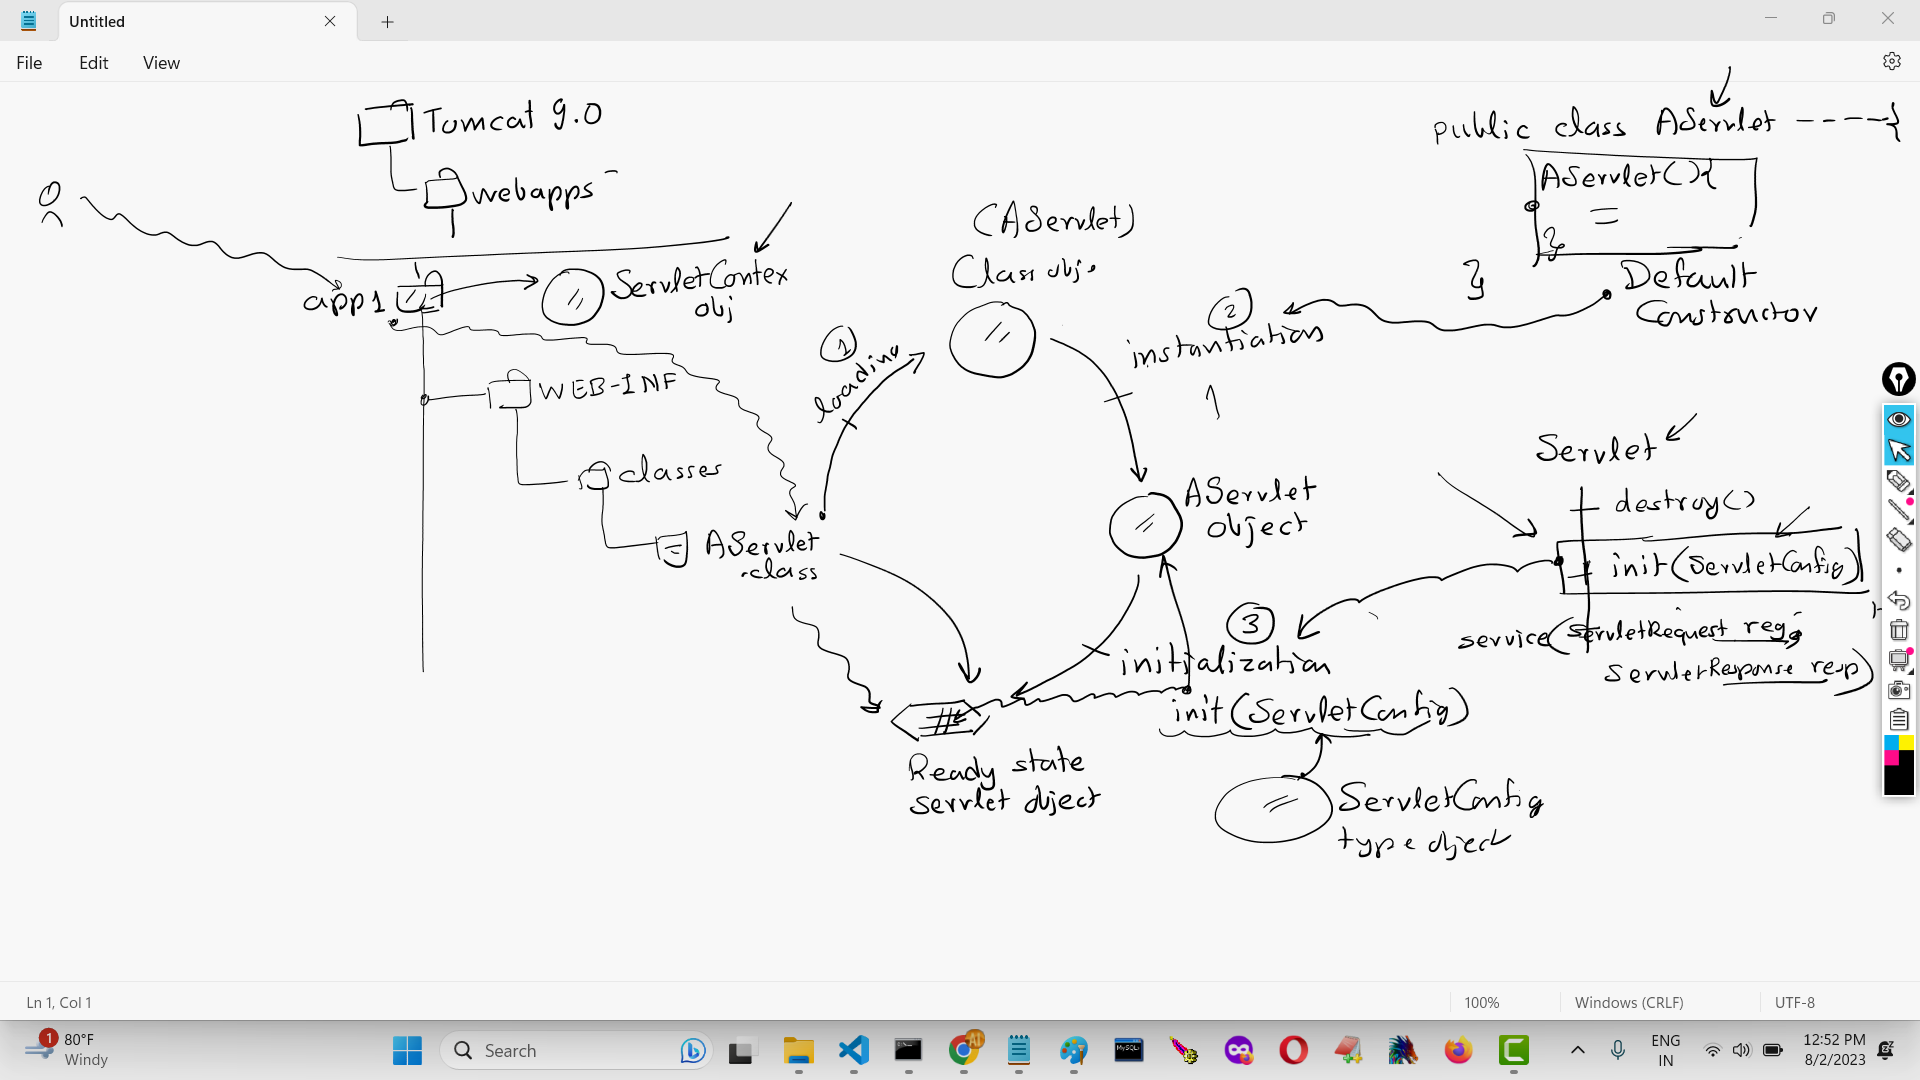 Untitled
File Edit View
Tomcat 9.0
webapps
app1
ServletContex
obj
WEB-INF
classes
AServlet
.class
① loading
(AServlet)
Class obj
② instantiation
AServlet
object
③ initialization
init(ServletConfig)
Ready state
servlet object
ServletConfig
type object
public class AServlet ----{
AServlet(){
}
}
Default
Constructor
Servlet
destroy()
init(ServletConfig)
service(ServletRequest req,
ServletResponse resp)
Ln 1, Col 1
100%
Windows (CRLF)
UTF-8
1
80°F
Windy
Search
MySQL
ENG
IN
12:52 PM
8/2/2023